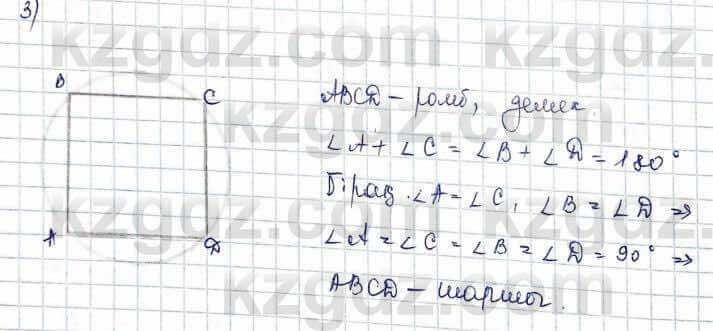 3)
B
C
A
D
ABCD - ромб, демек
∠A + ∠C = ∠B + ∠D = 180°
Бірақ ∠A = ∠C, ∠B = ∠D ⇒
∠A = ∠C = ∠B = ∠D = 90° ⇒
ABCD - шаршы.
kzgdz.com
kzgdz.com
kzgdz.com
kzgdz.com
kzgdz.com
kzgdz.com